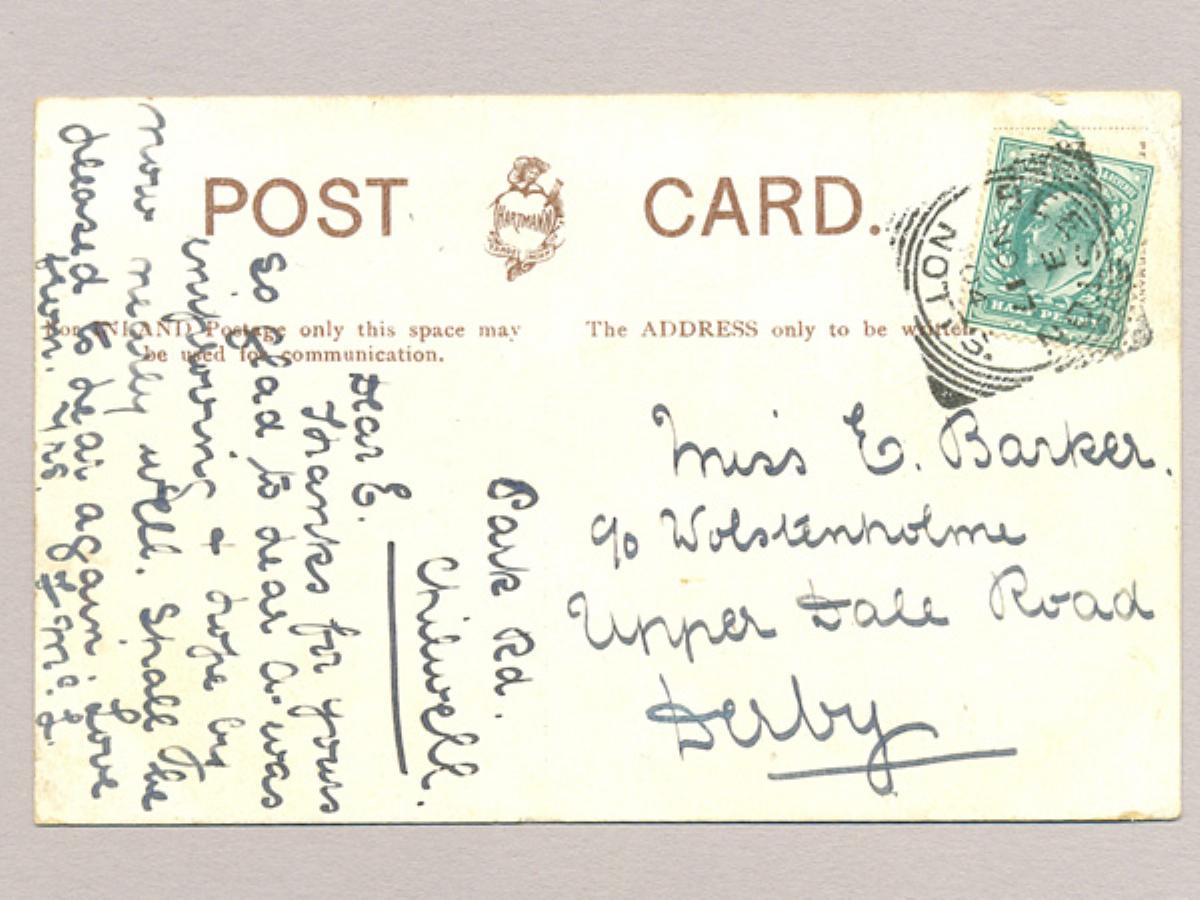 POST CARD.
HARTMANN
For INLAND Postage only this space may
be used for communication.
The ADDRESS only to be written
HALF PENNY
NOTTS
Miss E. Barker.
c/o Wolstenholme
Upper Dale Road
Derby
Park Rd.
Chilwell.
Dear E.
Thanks for yours
so glad to hear A. was
improving & hope by
now really well. Shall be
pleased to hear again. Love
from